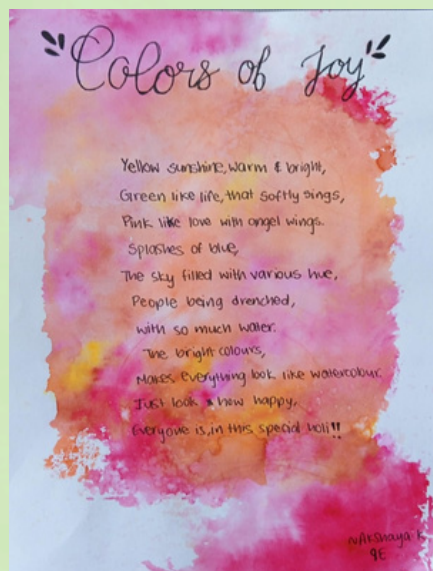 "Colors of Joy"
Yellow sunshine, warm & bright,
Green like life, that softly sings,
Pink like love with angel wings.
Splashes of blue,
The sky filled with various hue,
People being drenched,
with so much water.
The bright colours,
Makes everything look like watercolour.
Just look how happy,
Everyone is, in this special holi!!
~Akshaya.K
9E